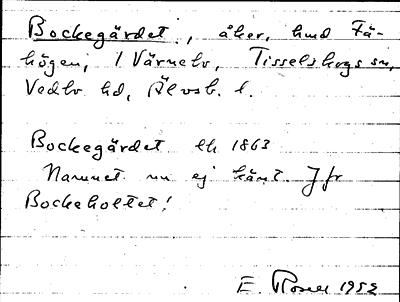 Bockegärdet, åker, hmd Fä-
högen, 1 Värnebo, Tisselskogs sn,
Vedbo hd, Älvsb. l.
Bockegärdet lh 1863
Namnet nu ej känt. Jfr
Bockeholtet!
E. Rosell 1952